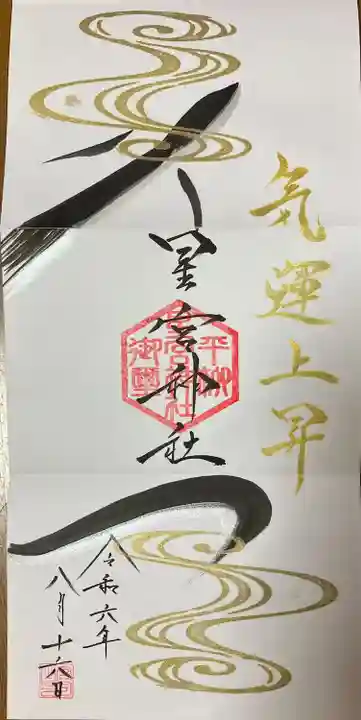 気運上昇
星宮神社
平柳
星宮神社
御璽
令和六年
八月十六日